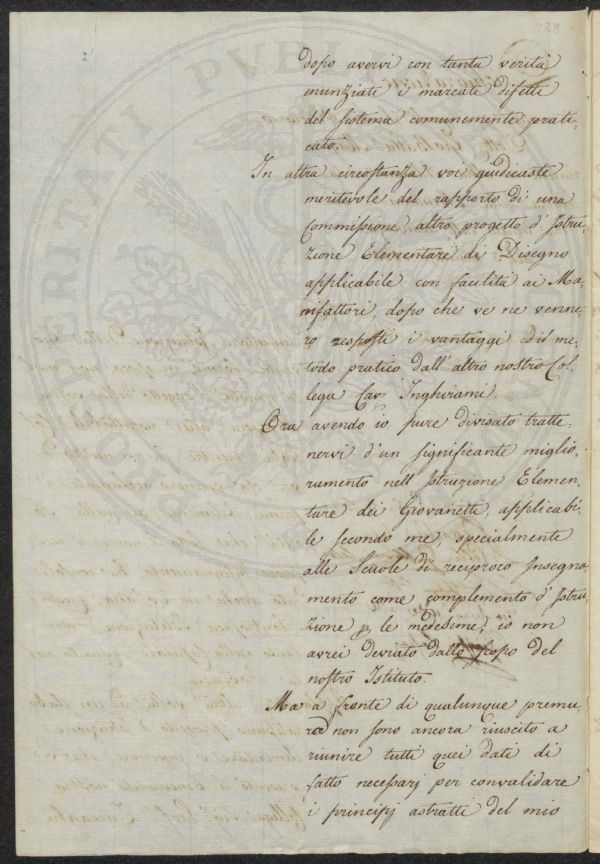 dopo avervi con tanta verità
enunziate i marcate difetti
del sistema comunemente prati-
cato.
In altra circostanza voi giudicaste
meritevole del rapporto di una
Commissione, altro progetto d'Istru-
zione Elementare di Disegno
applicabile con facilità ai Ma-
nifattori, dopo che ve ne venne-
ro resposti i vantaggi ed il me-
todo pratico dall'altro nostro Col-
lega Cav. Inghirami.
Ora avendo io pure divisato tratte-
nervi d'un significante miglio-
ramento nell'Istruzione Elemen-
tare dei Giovanetti, applicabi-
le secondo me, specialmente
alle Scuole di reciproco Insegna-
mento come complemento d'Istru-
zione p. le medesime, io non
avrei deviato dallo scopo del
nostro Istituto.
Ma a fronte di qualunque premu-
ra non sono ancora riuscito a
riunire tutti quei dati di
fatto necessarj per convalidare
i principj astratti del mio